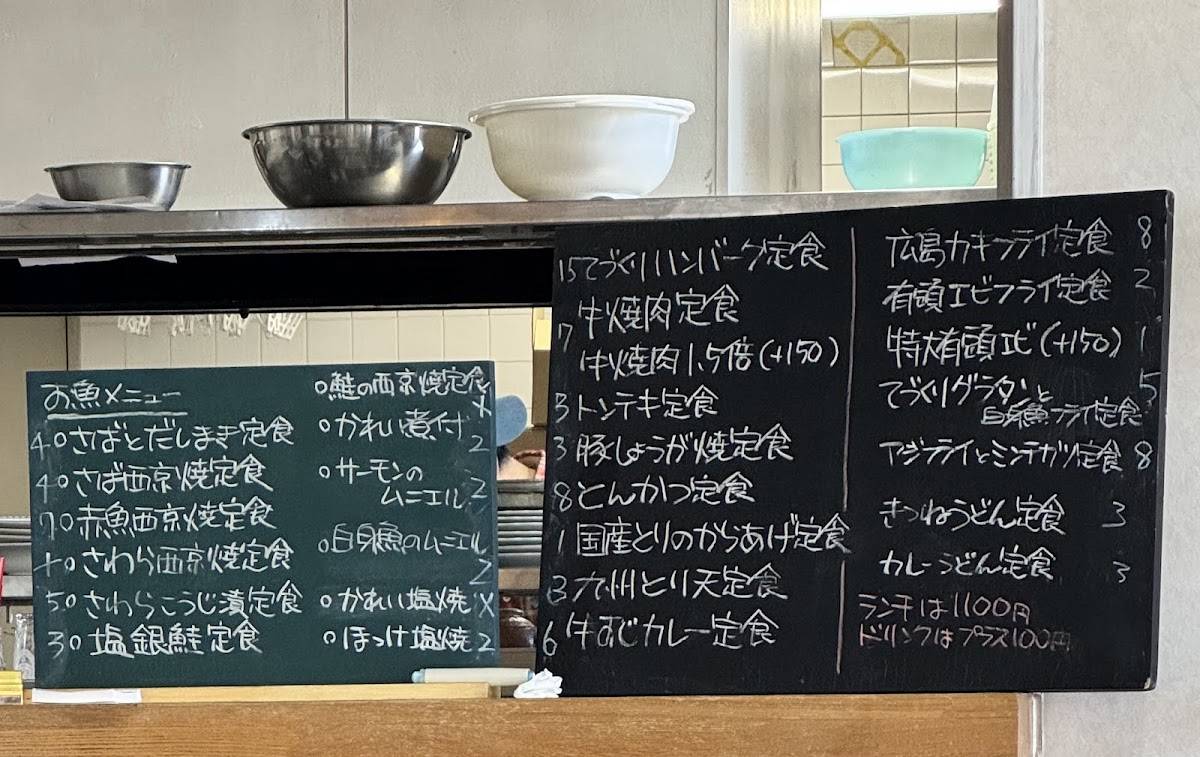 お魚メニュー
4○さばとだしまき定食
4○さば西京焼定食
7○赤魚西京焼定食
○さわら西京焼定食
5○さわらこうじ漬定食
3○塩銀鮭定食
○鮭の西京焼定食 X
○かれい煮付 2
○サーモンの
ムニエル 2
○白身魚のムニエル 2
○かれい塩焼 X
○ほっけ塩焼 2
15てづくりハンバーグ定食
7 牛焼肉定食
牛焼肉1.5倍(+150)
トンテキ定食
3 豚しょうが焼定食
8 とんかつ定食
1 国産とりのからあげ定食
3 九州とり天定食
6 牛すじカレー定食
広島カキフライ定食 8
有頭エビフライ定食 2
特大有頭エビ(+150) 1
てづくりグラタンと 5
白身魚フライ定食
アジフライとミンチカツ定食 8
きつねうどん定食 3
カレーうどん定食 3
ランチは1100円
ドリンクはプラス100円